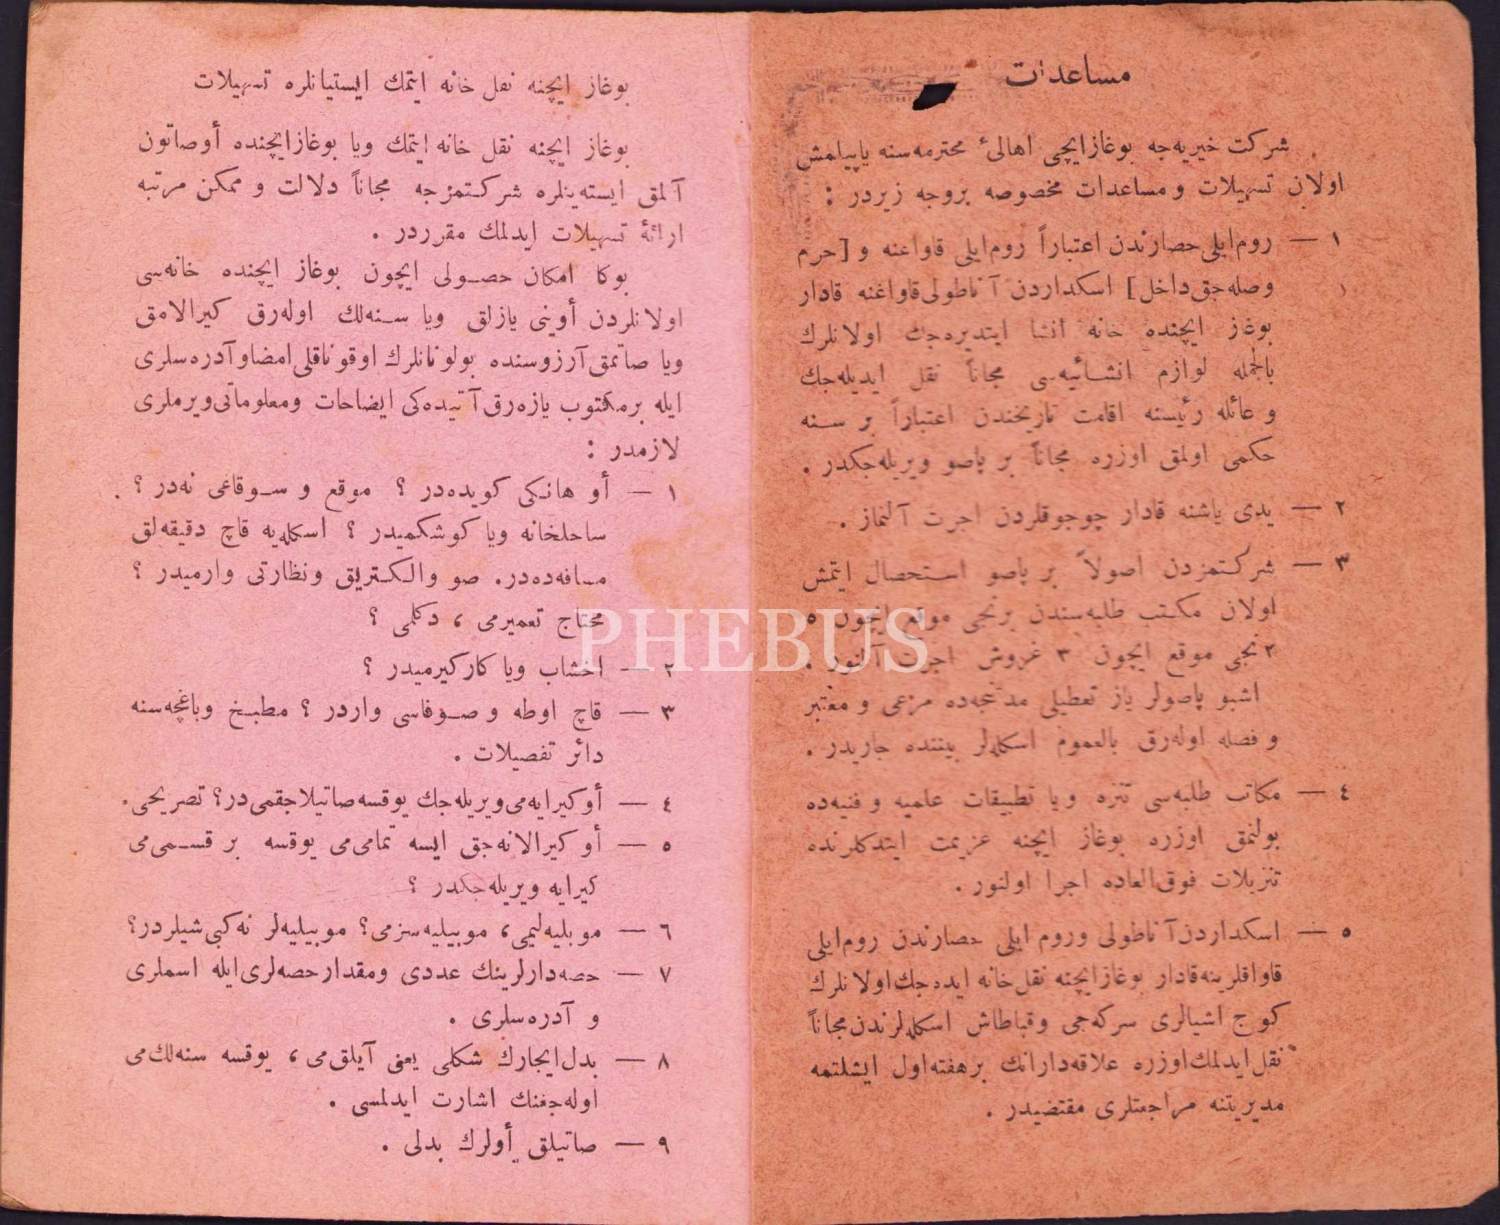 مساعدات
شركت خيريه‌جه بوغازايچى اهالىٔ محترمه‌سنه ياپيلمش
اولان تسهيلات ومساعدات مخصوصه بروجه زيردر :
١ — روم‌ايلى‌حصارندن اعتباراً روم‌ايلى قاواغنه و [حرم
وصله‌جق‌داخل] اسكداردن آناطولى‌قاواغنه قادار
بوغاز ايچنده خانه انشا ايتديره‌جك اولانلرك
بالجمله لوازم انشائيه‌سى مجاناً نقل ايديله‌جك
و عائله رئيسنه اقامت تاريخندن اعتباراً بر سنه
حكمى اولمق اوزره مجاناً بر پاصو ويريله‌جكدر .
٢ — يدى ياشنه قادار چوجوقلردن اجرت آلنماز .
٣ — شركتمزدن اصولاً بر پاصو استحصال ايتمش
اولان مكتب طلبه‌سندن برنجى موقع ايچون ٥
٢نجى موقع ايچون ٣ غروش اجرت آلنور .
اشبو پاصولر ياز تعطيلى مدتجه‌ده مرعى و معتبر
و فصله اوله‌رق بالعموم اسكله‌لر بيننده جاريدر .
٤ — مكاتب طلبه‌سى تنزه ويا تطبيقات علميه و فنيه‌ده
بولنمق اوزره بوغاز ايچنه عزيمت ايتدكلرنده
تنزيلات فوق‌العاده اجرا اولنور .
٥ — اسكداردن‌آناطولى وروم ايلى حصارندن روم‌ايلى
قاواقلرينه‌قادار بوغازايچنه نقل‌خانه ايده‌جك‌اولانلرك
كوچ اشيالرى سركه‌جى وقباطاش اسكله‌لرندن‌مجاناً
نقل‌ايدلمك‌اوزره علاقه‌دارانك برهفته‌اول ايشلتمه
مديريتنه مراجعتلرى مقتضيدر .
بوغاز ايچنه نقل خانه ايتمك ايستيانلره تسهيلات
بوغاز ايچنه نقل خانه ايتمك ويا بوغازايچنده أوصاتون
آلمق ايسته‌ينلره شركتمزجه مجاناً دلالت و ممكن مرتبه
ارائهٔ تسهيلات ايدلمك مقرردر .
بوكا امكان حصولى ايچون بوغاز ايچنده خانه‌سى
اولانلردن أوينى يازلق ويا سنه‌لك اوله‌رق كيرالامق
ويا صاتمق‌آرزوسنده بولونانلرك اوقوناقلى‌امضاوآدره‌سلرى
ايله برمكتوب يازه‌رق‌آتيده‌كى ايضاحات ومعلوماتى‌ويرملرى
لازمدر :
١ — أو هانكى كويده‌در ؟ موقع و سوقاغى نه‌در ؟
ساحلخانه ويا كوشكميدر ؟ اسكله‌يه قاچ دقيقه‌لق
مسافه‌ده‌در. صو والكتريق ونظارتى وارميدر ؟
محتاج تعميرمى ، دكلمى ؟
٢ — اخشاب ويا كاركيرميدر ؟
٣ — قاچ اوطه و صوفاسى واردر ؟ مطبخ وباغچه‌سنه
دائر تفصيلات .
٤ — أوكيرايه‌مى‌ويريله‌جك يوقسه‌صاتيلاجقمى‌در؟ تصريحى.
٥ — أو كيرالانه‌جق ايسه تمامى‌مى يوقسه بر قسمى‌مى
كيرايه ويريله‌جكدر ؟
٦ — موبليه‌ليمى، موبيليه‌سزمى؟ موبيليه‌لر نه‌كبى‌شيلردر؟
٧ — حصه‌دارلرينك عددى ومقدارحصه‌لرى‌ايله اسملرى
و آدره‌سلرى .
٨ — بدل‌ايجارك شكلى يعنى آيلق‌مى ، يوقسه سنه‌لك‌مى
اوله‌جغنك اشارت ايدلمسى .
٩ — صاتيلق أولرك بدلى .
PHEBUS